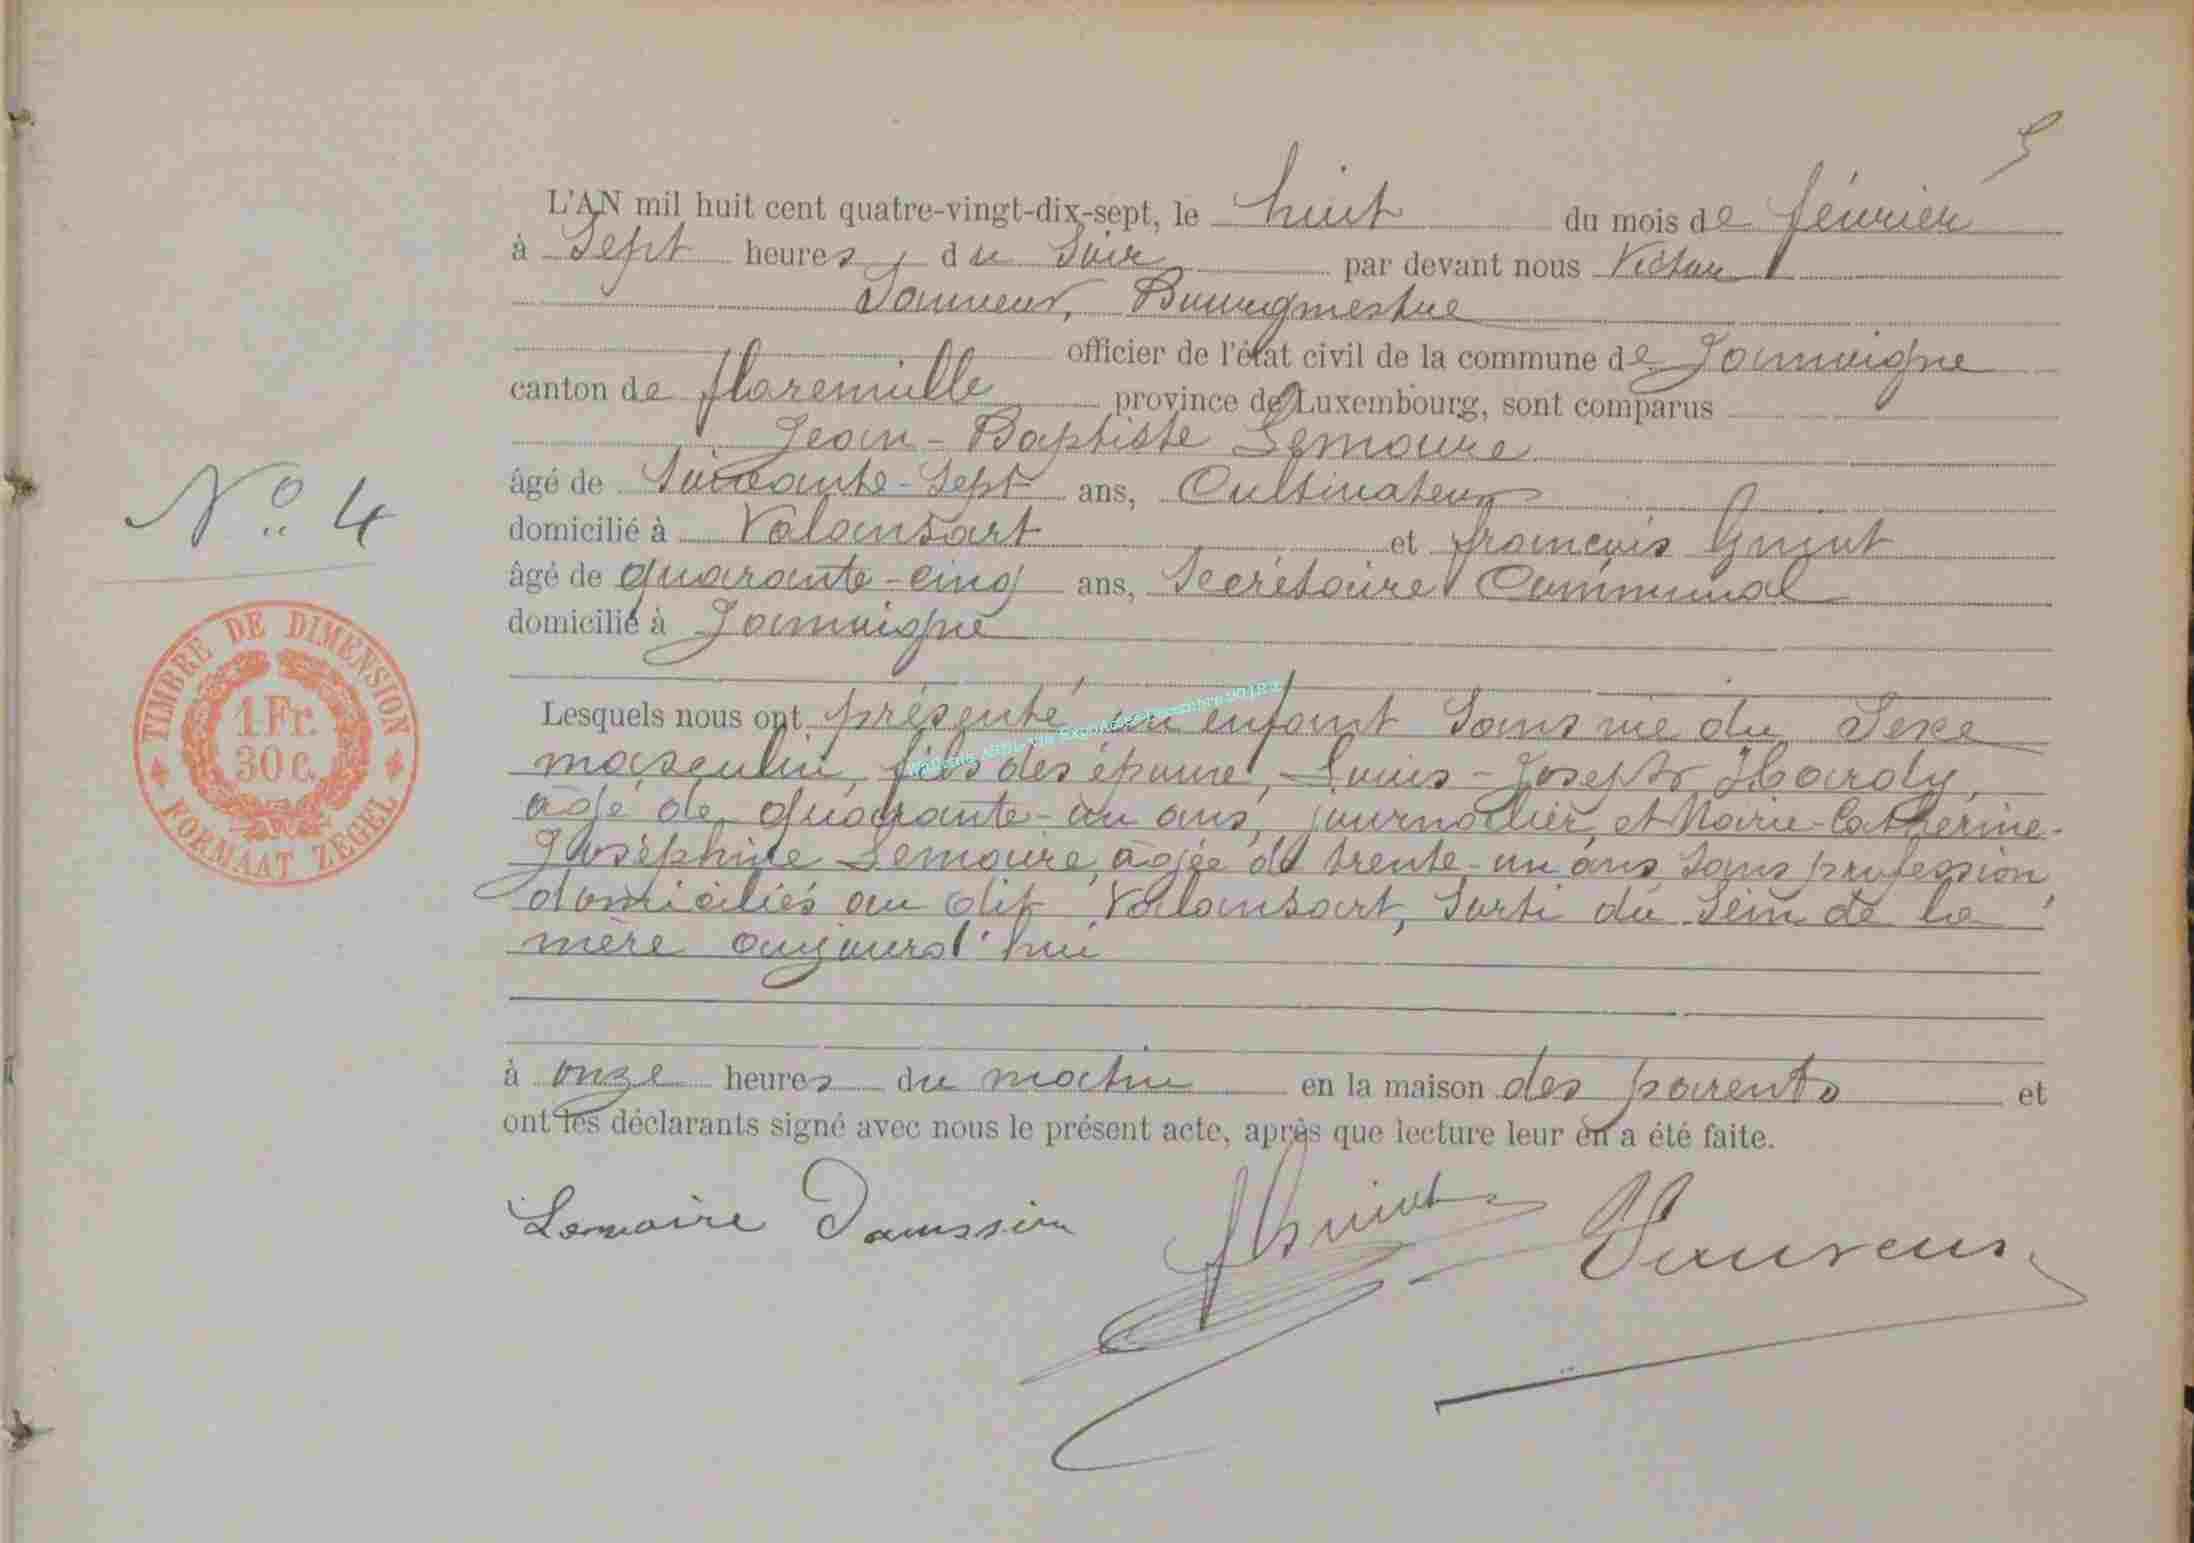 5
L'AN mil huit cent quatre-vingt-dix-sept, le huit du mois de février
à Sept heures, du Soir par devant nous Victor
Sauveur, Bourgmestre
officier de l'état civil de la commune de Jamoigne
canton de florenville province de Luxembourg, sont comparus
Jean-Baptiste Lemaire
âgé de Soixante-Sept ans, Cultivateur
domicilié à Valansart et françois Guiot
âgé de quarante-cinq ans, Secrétaire Communal
domicilié à Jamoigne
N° 4
TIMBRE DE DIMENSION
1 Fr.
30 c.
FORMAAT ZEGEL
Lesquels nous ont présenté un enfant Sans vie du Sexe
masculin, fils des époux, Louis-Joseph Hardy,
âgé de quarante-un ans, journalier, et Marie-Catherine-
Joséphine Lemaire, âgée de trente-un ans Sans profession,
domiciliés au dit Valansart, Sorti du Sein de la
mère aujourd'hui
à onze heures du matin en la maison des parents et
ont les déclarants signé avec nous le présent acte, après que lecture leur en a été faite.
Lemaire Daussin Guiot Sauveur